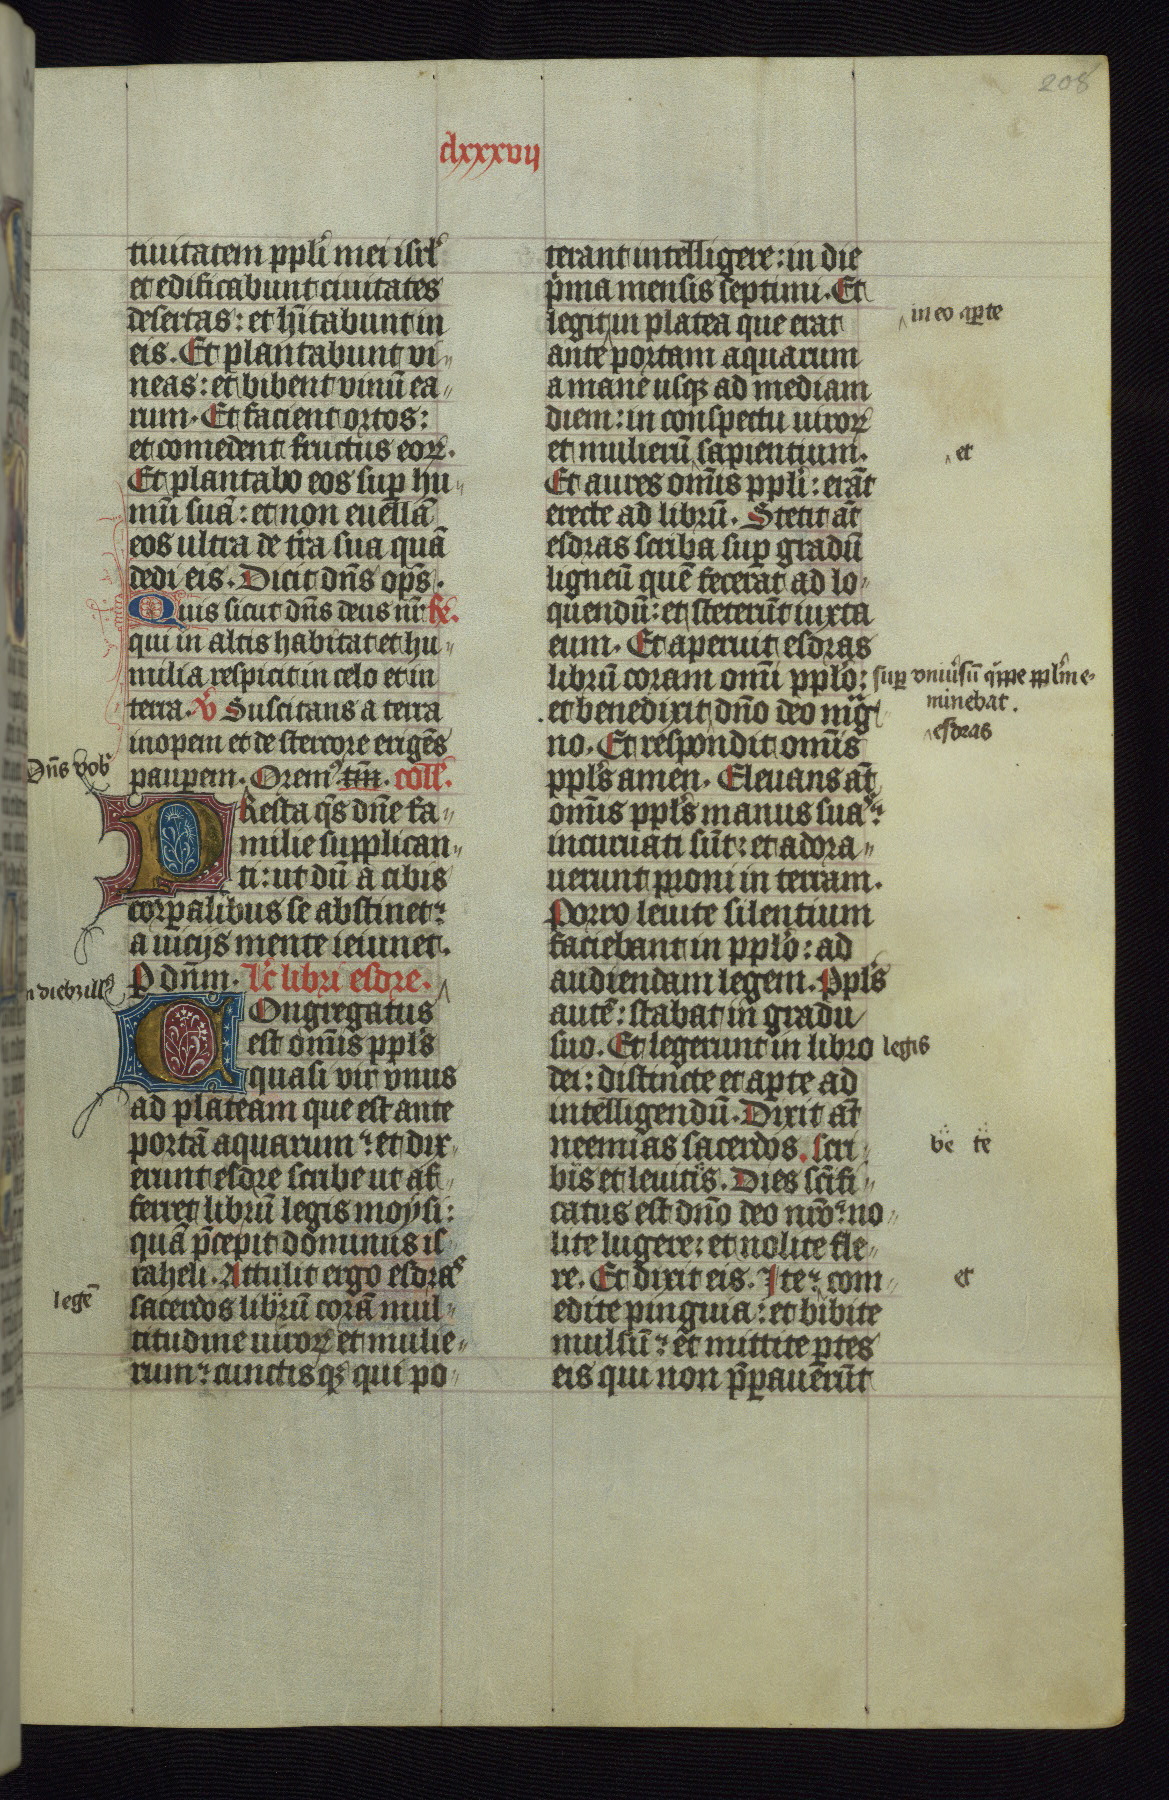 208
clxxxvij
tiuitatem ppli mei isrl
et edificabunt ciuitates
desertas: et hitabunt in
eis. Et plantabunt vi-
neas: et bibent vinū ea-
rum. Et facient ortos:
et comedent fructus eoꝝ.
Et plantabo eos suꝑ hu-
mū suā: et non euellā
eos ultra de tr̄a sua quā
dedi eis. Dicit dn̄s op̄s.
Quis sicut dn̄s deus nr̄
qui in altis habitat et hu-
milia respicit in celo et in
terra. ℣ Suscitans a terra
inopem et de stercore erigēs
Dn̄s vob
pauꝑem. Orem⁹. coll̄.
PResta q̄s dn̄e fa-
milie supplican-
ti: ut dū a cibis
corꝑalibus se abstinet:
a uicijs mente ieiunet.
P dn̄m. Lc̄ libri esdre.
n diebꝫ ill
COngregatus
est om̄is ppl̄s
quasi vir vnus
ad plateam que est ante
portā aquarum: et dix-
erunt esdre scribe ut af-
ferret librū legis moysi:
quā p̄cepit dominus is-
raheli. Attulit ergo esdras
legē
sacerdos librū corā mul-
titudine uiroꝝ et mulie-
rum: cunctisqꝫ qui po-
terant intelligere: in die
p̄ma mensis septimi. Et
legit in platea que erat
in eo aꝑte
ante portam aquarum
a mane usqꝫ ad mediam
diem: in conspectu uiroꝝ
et mulierū sapientium.
et
Et aures om̄is ppli: erāt
erecte ad librū. Stetit at̄
esdras scriba suꝑ gradū
ligneū quē fecerat ad lo-
quendū: et steterūt iuxta
eum. Et aperuit esdras
librū coram om̄i pplo:
suꝑ vniuersū q̄ppe pplm e-
minebat.
et benedixit dn̄o deo mag
esdras
no. Et respondit om̄is
ppl̄s amen. Eleuans at̄
om̄is ppl̄s manus suas:
incuruati sūt: et adora-
uerunt proni in terram.
Porro leuite silentium
faciebant in pplo: ad
audiendam legem. Ppl̄s
autē: stabat in gradu
suo. Et legerunt in libro
legis
dei: distincte et aꝑte ad
intelligendū. Dixit at̄
neemias sacerdos. scri-
be te
bis et leuitis. Dies sc̄ifi-
catus est dn̄o deo nr̄o: no-
lite lugere: et nolite fle-
re. Et dixit eis. Ite: com-
et
edite pinguia: et bibite
mulsū: et mittite ꝑtes
eis qui non p̄ꝑauerūt